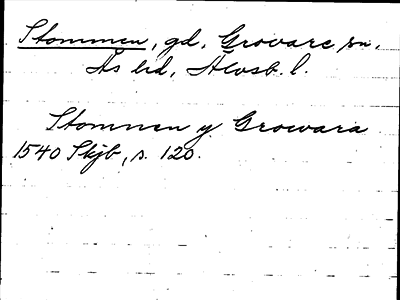 Stommen, gd, Grovare sn,
Ås hd, Älvsb. l.
Stommen y Growara
1540 Skjb, s. 120.